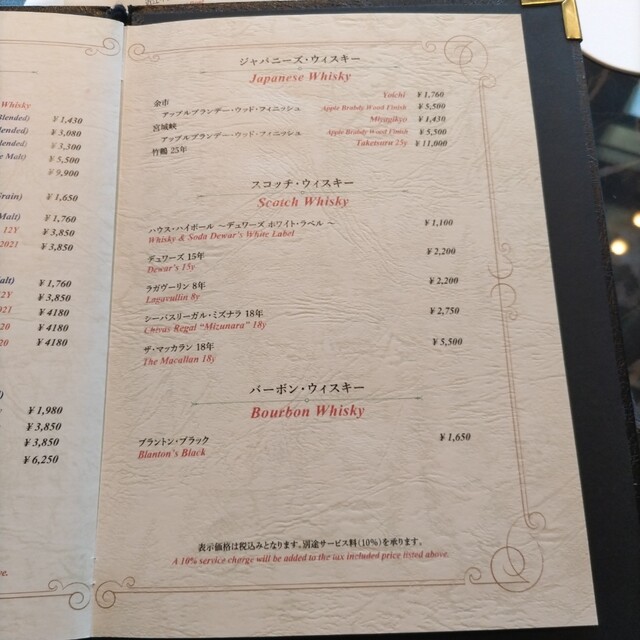 Whisky
¥1,430
¥3,080
¥3,300
¥5,500
¥9,900
¥1,650
¥1,760
12Y ¥3,850
2021 ¥3,850
¥1,760
12Y ¥3,850
¥4180
¥4180
¥4180
¥1,980
¥3,850
¥3,850
¥6,250
ジャパニーズ・ウィスキー
Japanese Whisky
余市 Yoichi ¥1,760
アップルブランデー・ウッド・フィニッシュ Apple Brandy Wood Finish ¥5,500
宮城峡 Miyagikyo ¥1,430
アップルブランデー・ウッド・フィニッシュ Apple Brandy Wood Finish ¥5,500
竹鶴 25年 Taketsuru 25y ¥11,000
スコッチ・ウィスキー
Scotch Whisky
ハウス・ハイボール ～デュワーズ ホワイト・ラベル～ ¥1,100
Whisky & Soda Dewar's White Label
デュワーズ 15年 ¥2,200
Dewar's 15y
ラガヴーリン 8年 ¥2,200
Lagavullin 8y
シーバスリーガル・ミズナラ 18年 ¥2,750
Chivas Regal "Mizunara" 18y
ザ・マッカラン 18年 ¥5,500
The Macallan 18y
バーボン・ウィスキー
Bourbon Whisky
ブラントン・ブラック ¥1,650
Blanton's Black
表示価格は税込みとなります。別途サービス料(10%)を承ります。
A 10% service charge will be added to the tax included price listed above.